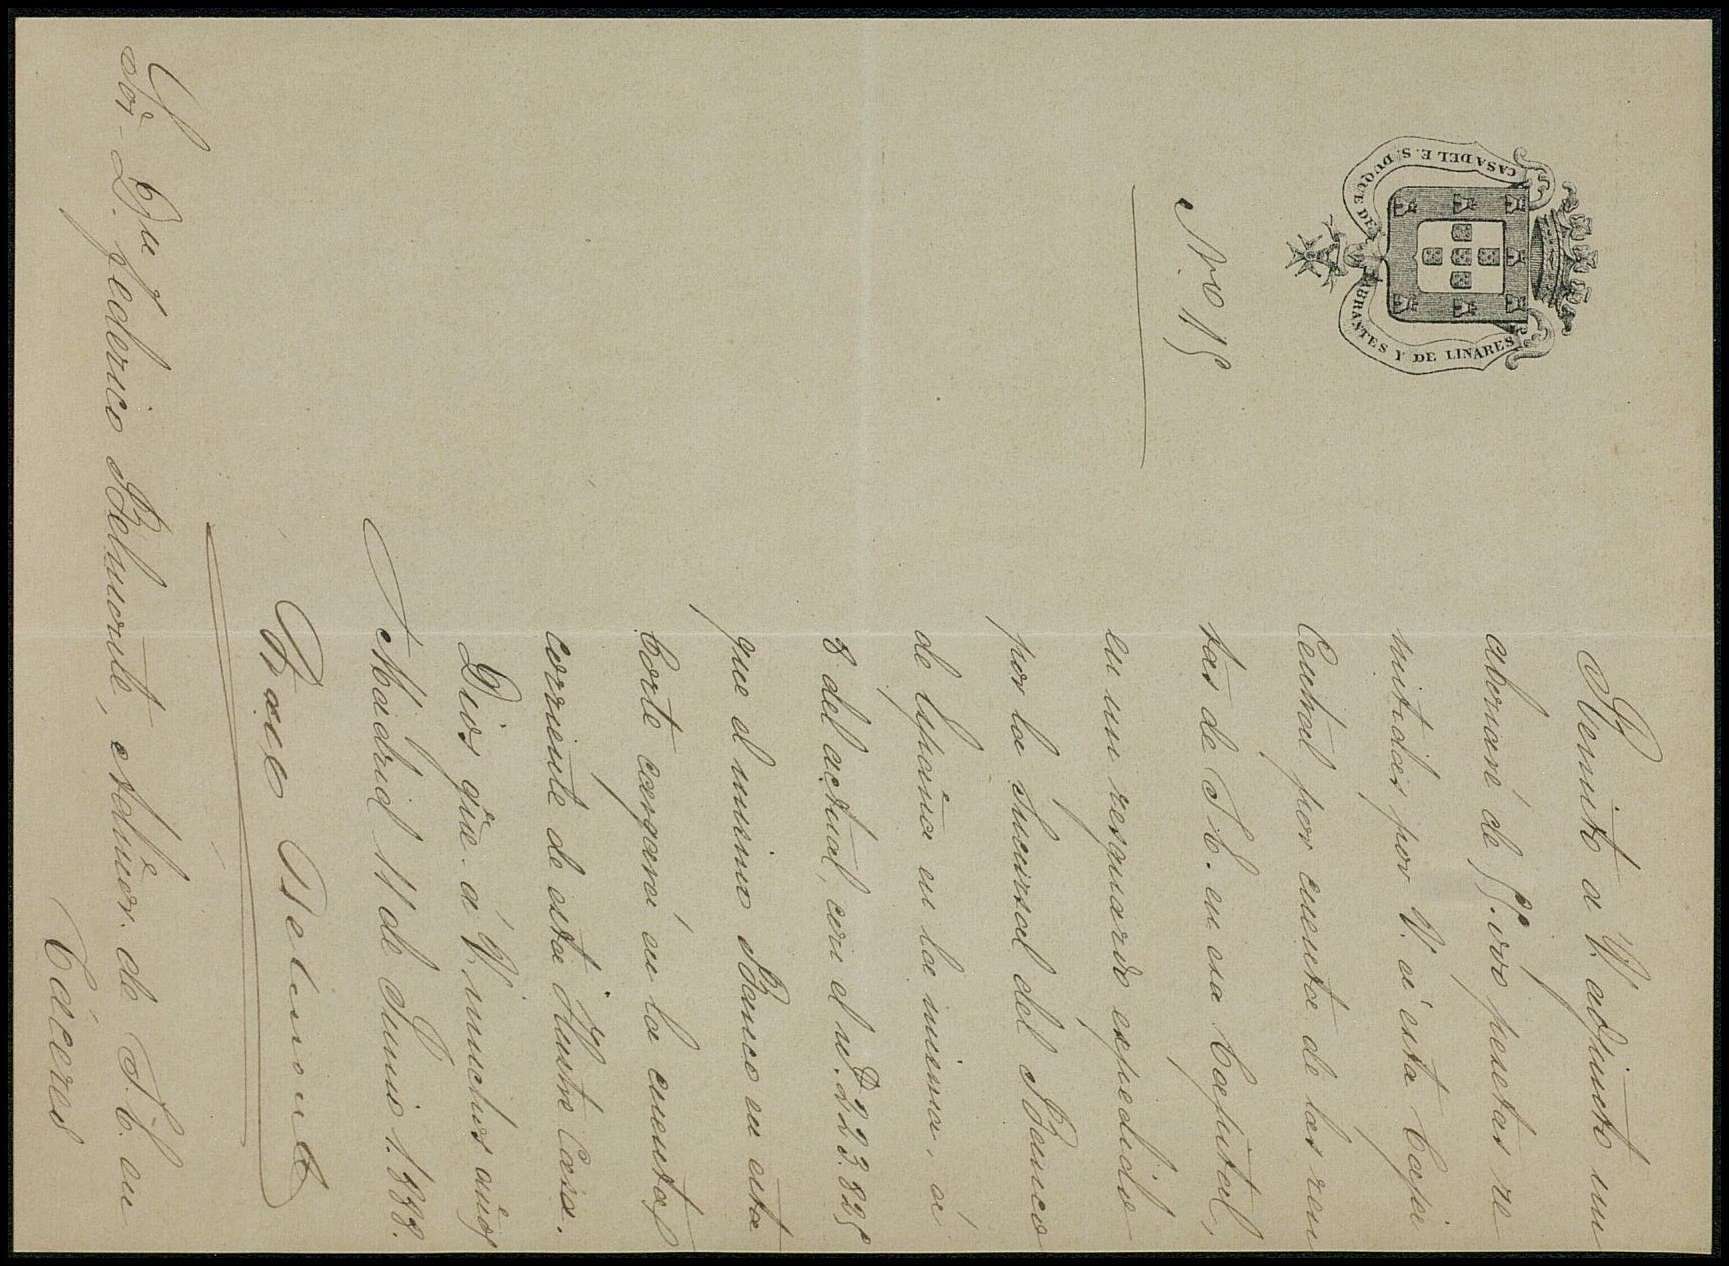 CASA DEL E. S. DUQUE DE ABRANTES Y DE LINARES
Nro 15
Remito a V. adjunto un
abonaré de 55.000 pesetas re
mitidas por V. á esta Capi
Central por cuenta de las ren
tas de S.E. en esa Capital,
en un resguardo expedido
por la Sucursal del Banco
de España en la misma, á
8 del actual, con el nº 223.825
que el mismo Banco en esta
Corte cargará en la cuenta
corriente de esta Ilustre Casa.
Dios gue. á V. muchos años
Madrid 11 de Junio 1.888.
Belmonte
Sor. D. Federico Belmonte, Admor. de S.E. en
Cáceres